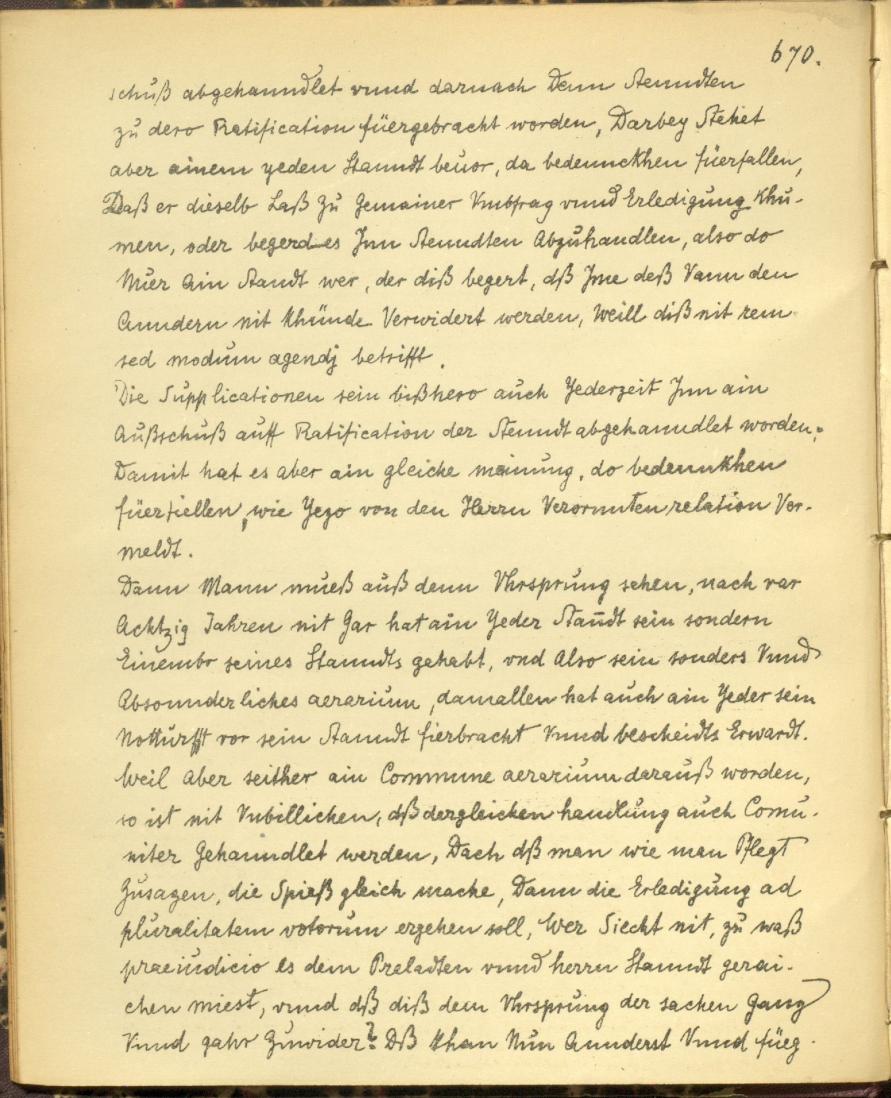 670.
schuß abgehanndlet vnnd darnach Denn Stenndten
zu dero Ratification füergebracht worden, Darbey Stehet
aber ainem yeden Stanndt beuor, da bedennckhen füerfallen,
Daß er dieselb Laß Zu Gemainer Vmbfrag vnnd Erledigung Khu-
men, oder begerd es Jnn Stenndten Abzuhandlen, also do
Nuer Ain Standt wer, der diß begert, dß Jme deß Vann den
Anndern nit Khünde Verwidert werden, Weill diß nit rem
sed modum agendj betrifft.
Die Supplicationen sein bißhero auch Yederzeit Jnn ain
Außschuß auff Ratification der Stenndt abgehanndlet worden;
Damit hat es aber ain gleiche meinung, do bedennkhen
füerfiellen, wie Yezo von den Herrn Verornnten relation Ver-
meldt.
Dann Mann mueß auß denn Vhrsprung sehen, nach vor
Achtzig Jahren nit Gar hat ain Yeder Stanndt sein sondern
Einembr seines Stanndts gehabt, vnd Also sein sonders Vnnd
Absonnderliches aerarium, damallen hat auch ain Yeder sein
Notturfft vor sein Stanndt fierbracht Vnnd bescheidts Erwardt.
Weil Aber seither ain Commune aerarium darauß worden,
so ist nit Vnbillichen, dß dergleichen handlung auch Comu-
niter Gehanndlet werden, Dach dß man wie man Pflegt
Zusagen, die Spieß gleich mache, Dann die Erledigung ad
pluralitatem votorum ergehen soll, Wer Siecht nit, zu waß
praeiudicio es dem Preladten vnnd herrn Stanndt gerai-
chen miest, vnnd dß diß dem Vhrsprung der sachen Ganz
Vnnd gahr Zuwider? Dß Khan Nun Annderst Vnnd füeg-